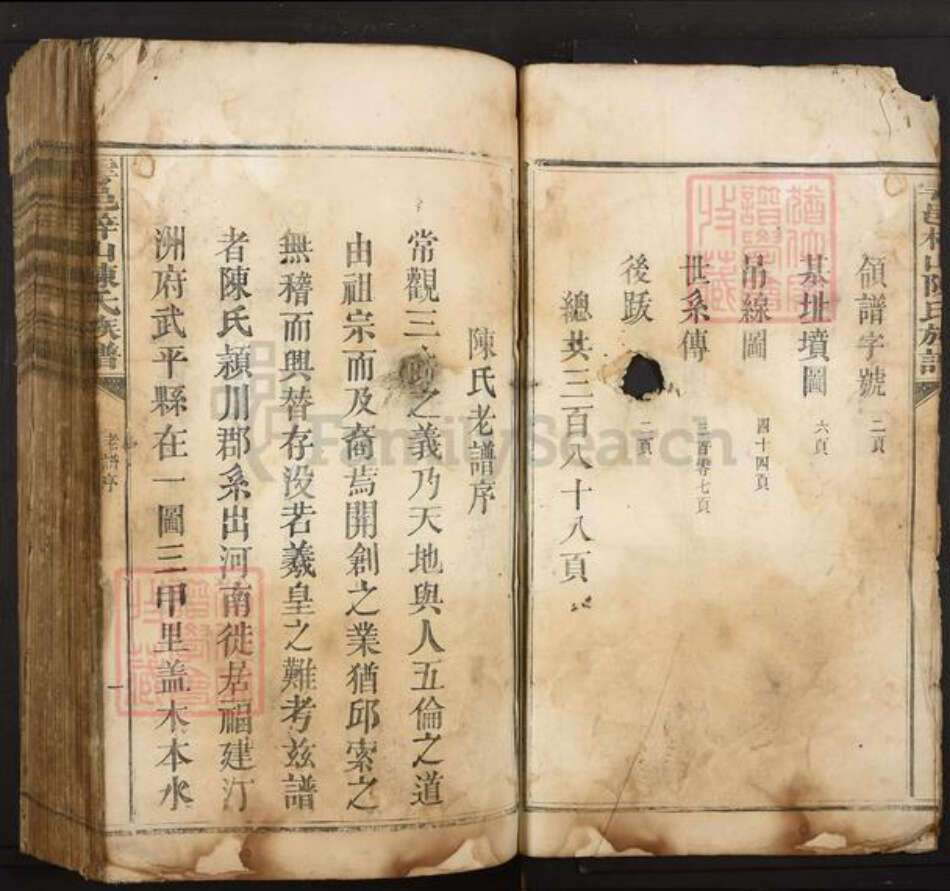 領譜字號 二頁
基址墳圖 六頁
吊線圖 四十四頁
世系傳 三百零七頁
後跋 二頁
總共三百八十八頁
陳氏老譜序
常觀三 之義乃天地與人五倫之道
由祖宗而及裔焉開創之業猶邱索之
無稽而興替存没若羲皇之難考玆譜
者陳氏潁川郡系出河南徙居福建汀
洲府武平縣在一圖三甲里盖木本水
老譜序
一
FamilySearch